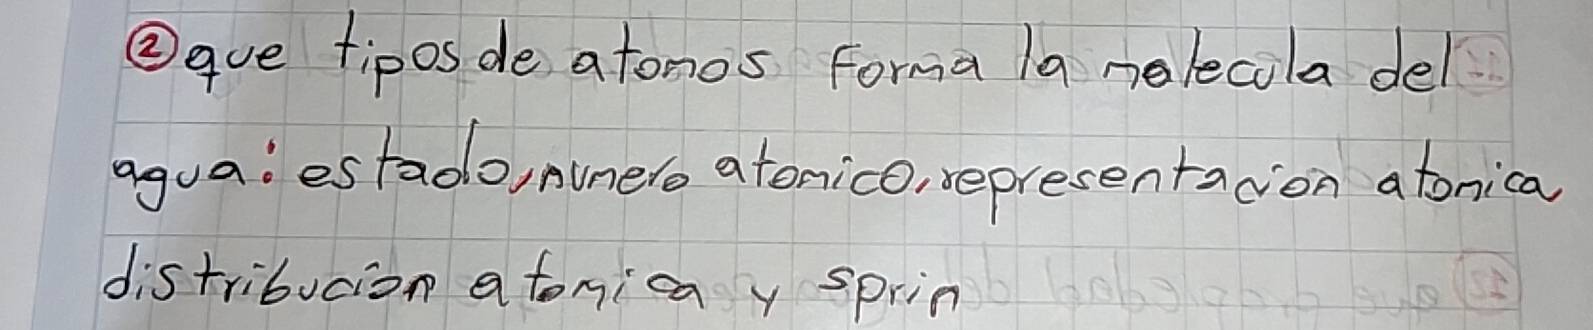 ② que tipos de atomos Forma la molecula del
agua: estado, numero atomico, representacion atomica,
distribucion atomica y sprin